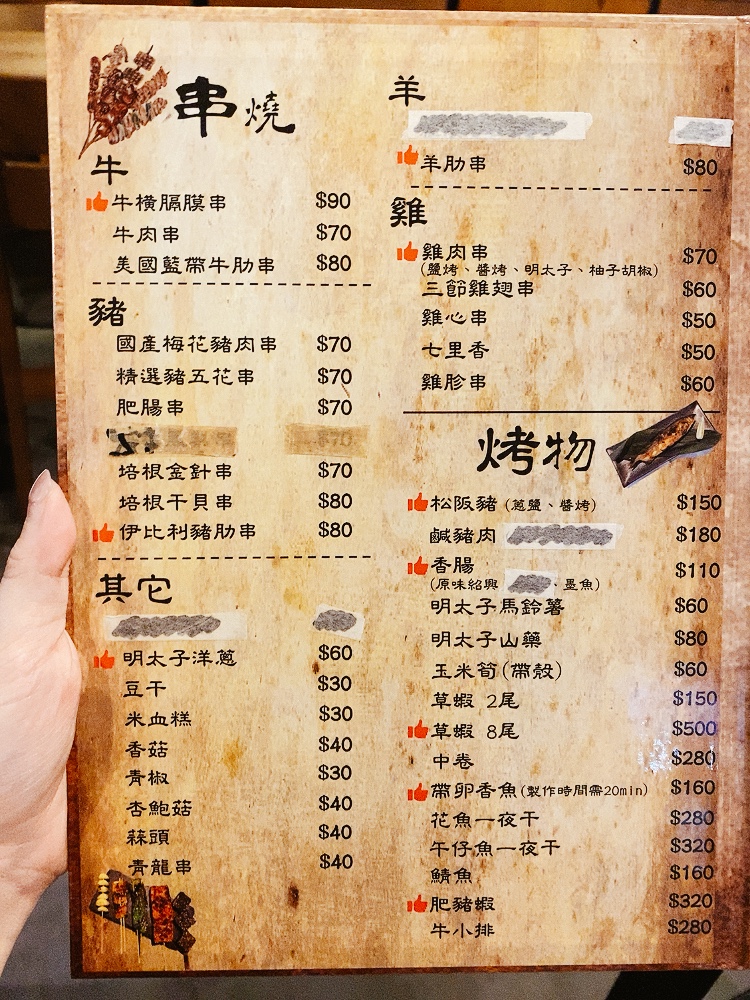 串燒
牛
牛橫膈膜串 $90
牛肉串 $70
美國藍帶牛肋串 $80
豬
國產梅花豬肉串 $70
精選豬五花串 $70
肥腸串 $70
$70
培根金針串 $70
培根干貝串 $80
伊比利豬肋串 $80
其它
明太子洋蔥 $60
豆干 $30
米血糕 $30
香菇 $40
青椒 $30
杏鮑菇 $40
蒜頭 $40
青龍串 $40
羊
羊肋串 $80
雞
雞肉串 $70
(鹽烤、醬烤、明太子、柚子胡椒)
三節雞翅串 $60
雞心串 $50
七里香 $50
雞胗串 $60
烤物
松阪豬(蔥鹽、醬烤) $150
鹹豬肉 $180
香腸 $110
(原味紹興 、墨魚)
明太子馬鈴薯 $60
明太子山藥 $80
玉米筍(帶殼) $60
草蝦 2尾 $150
草蝦 8尾 $500
中卷 $280
帶卵香魚(製作時間需20min) $160
花魚一夜干 $280
午仔魚一夜干 $320
鯖魚 $160
肥豬蝦 $320
牛小排 $280